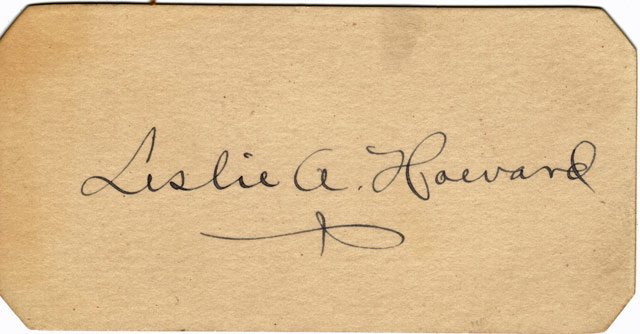 Leslie A. Howard